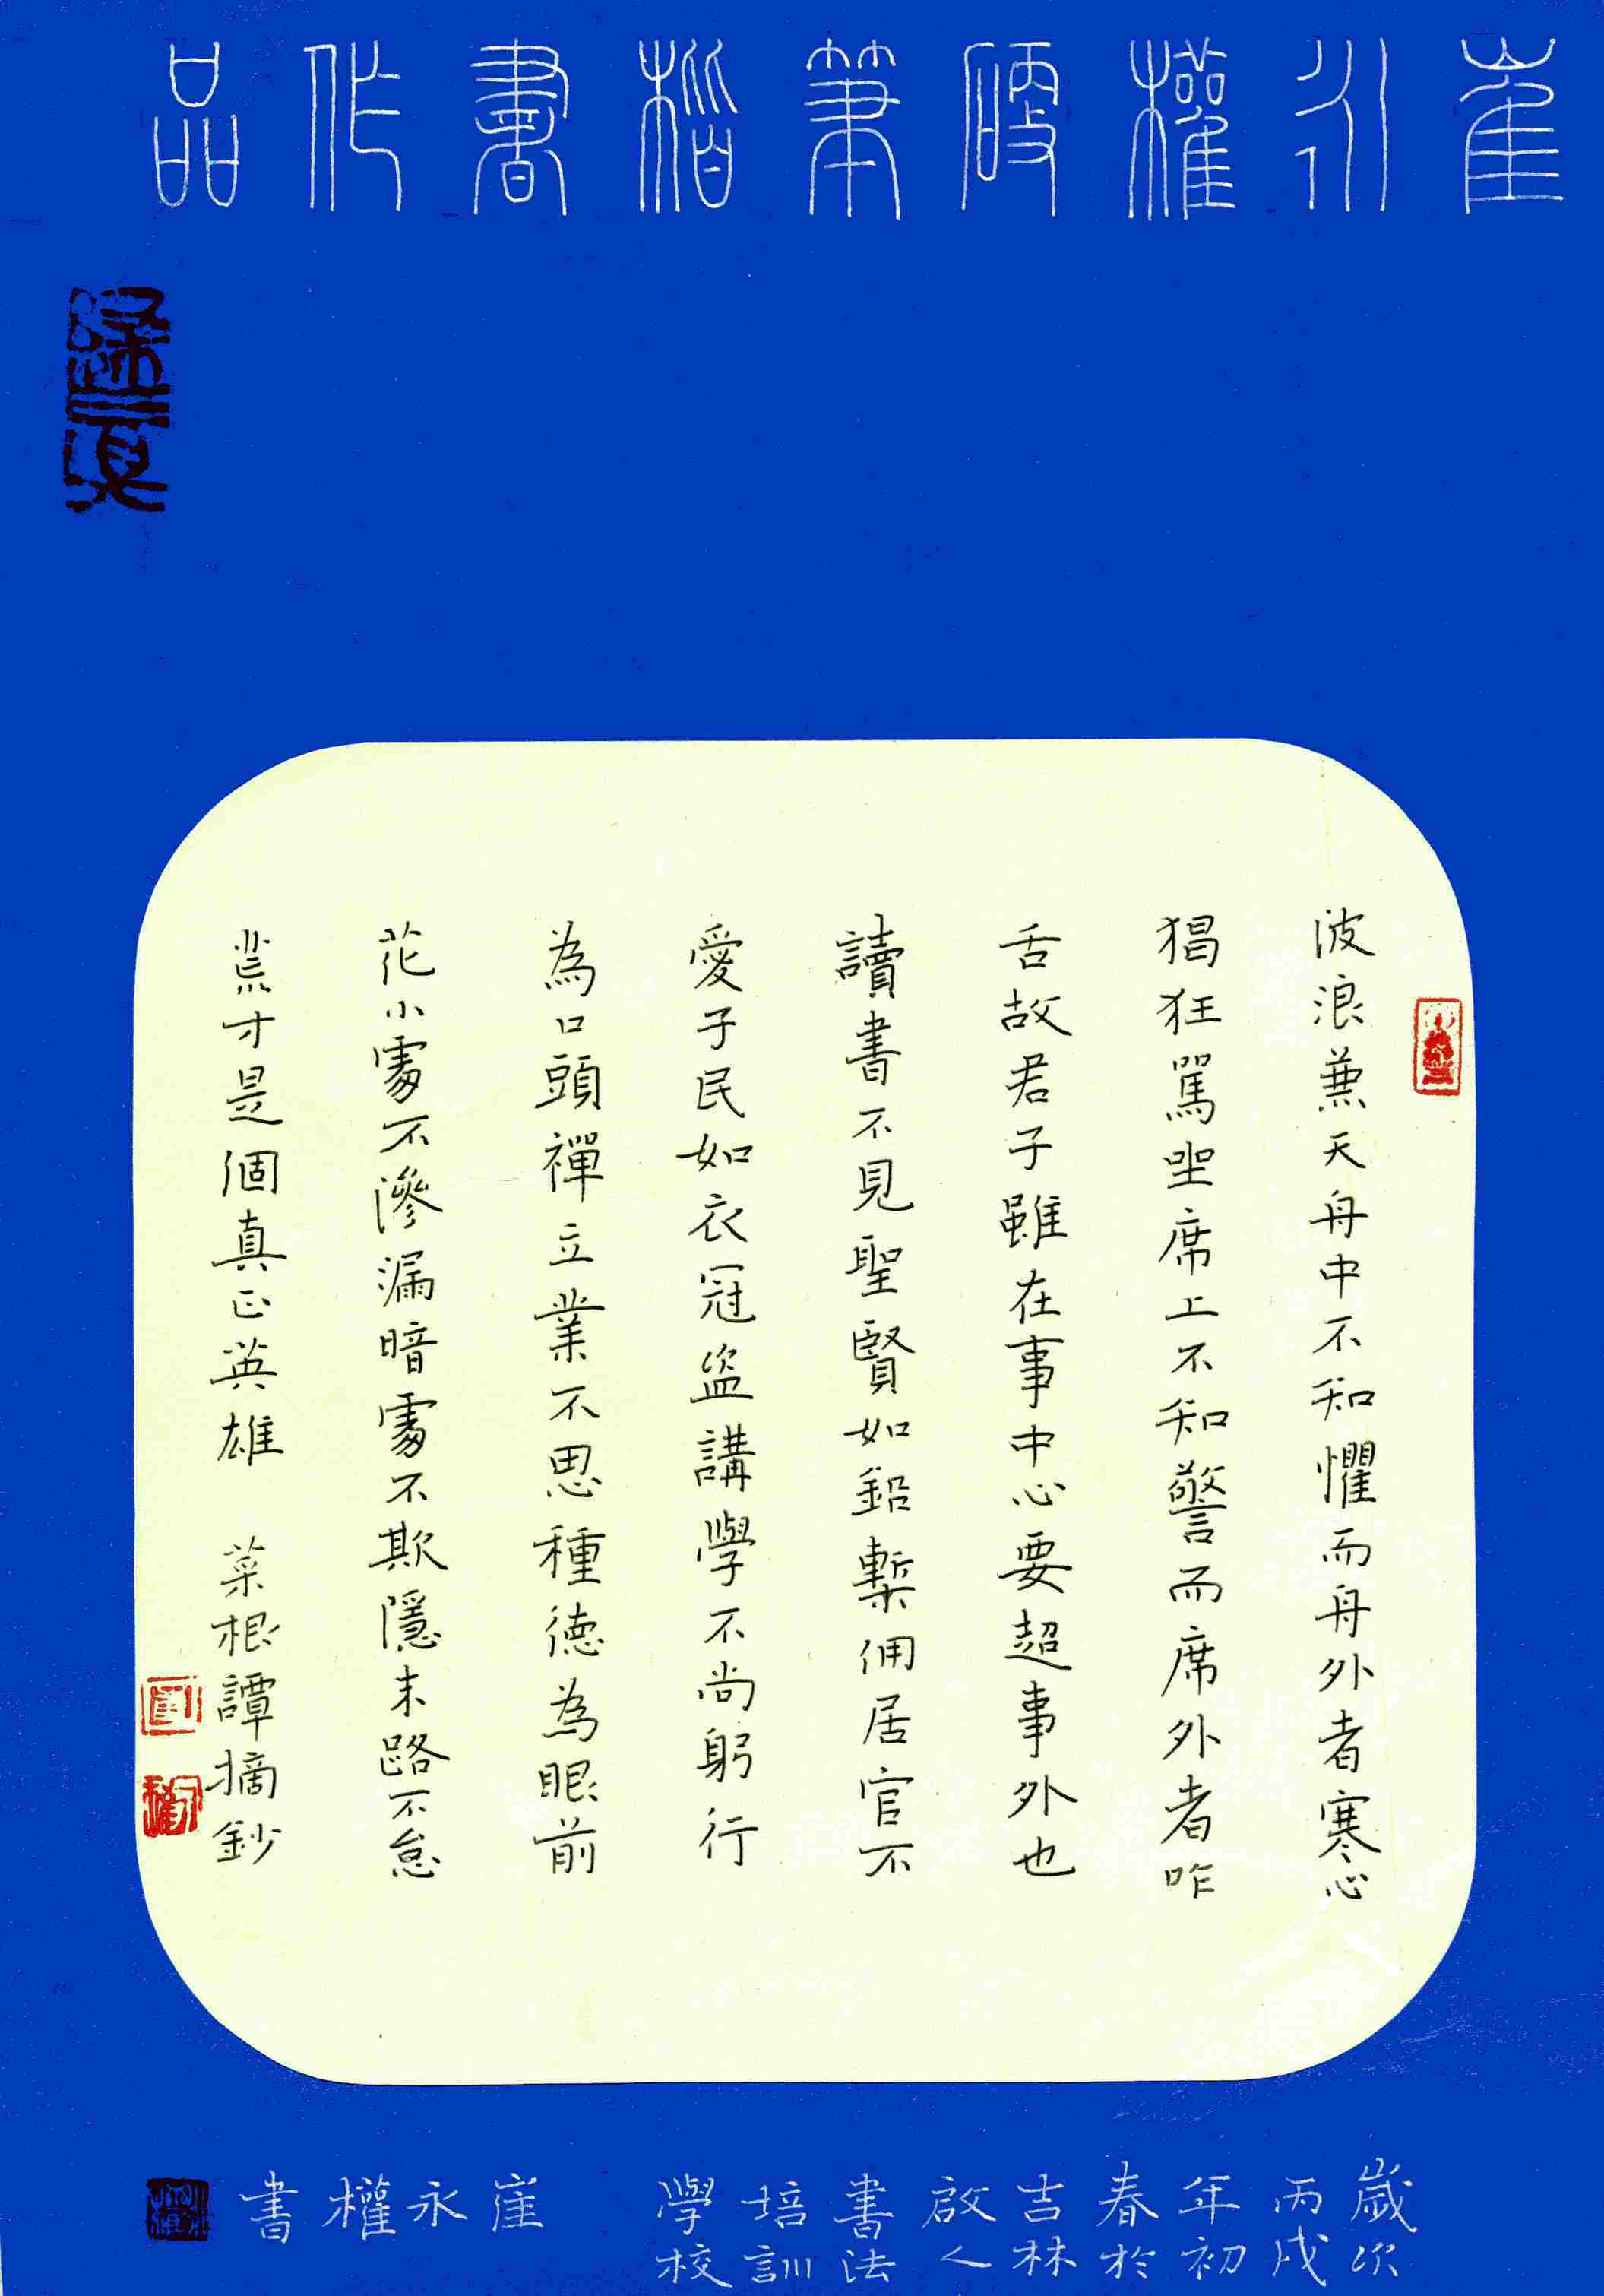 崔永權硬筆楷書作品
波浪兼天舟中不知懼而舟外者寒心
猖狂罵坐席上不知警而席外者咋
舌故君子雖在事中心要超事外也
讀書不見聖賢如鉛槧佣居官不
愛子民如衣冠盜講學不尚躬行
為口頭禪立業不思種德為眼前
花小處不滲漏暗處不欺隱末路不怠
荒才是個真正英雄 菜根譚摘鈔
歲次
丙戌
年初
春於
吉林
啟人
書法
培訓
學校
崔永權書